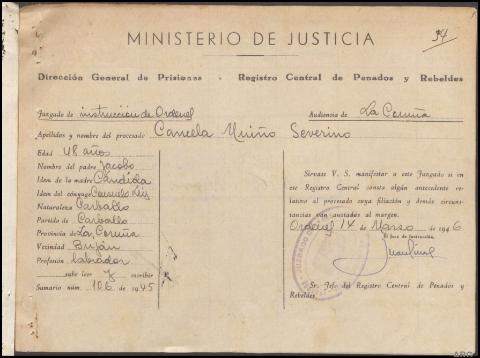 34
MINISTERIO DE JUSTICIA
Dirección General de Prisiones - Registro Central de Penados y Rebeldes
Juzgado de instrucción de Ordenes
Audiencia de La Coruña
Apellidos y nombre del procesado Cancela Muiño Severino
Edad 48 años
Nombre del padre Jacobo
Idem de la madre Cándida
Idem del cónyuge Consuelo
Naturaleza Carballo
Partido de Carballo
Provincia de La Coruña
Vecindad Buján
Profesión labrador
sabe leer y escribir
Sumario núm. 106 de 1945
Sírvase V. S. manifestar a este Juzgado si en
ese Registro Central consta algún antecedente relativo
al procesado cuya filiación y demás circunstancias
van anotadas al margen.
Ordenes 14 de Marzo de 1946
El Juez de Instrucción,
JUZGADO DE
Sr. Jefe del Registro Central de Penados y
Rebeldes